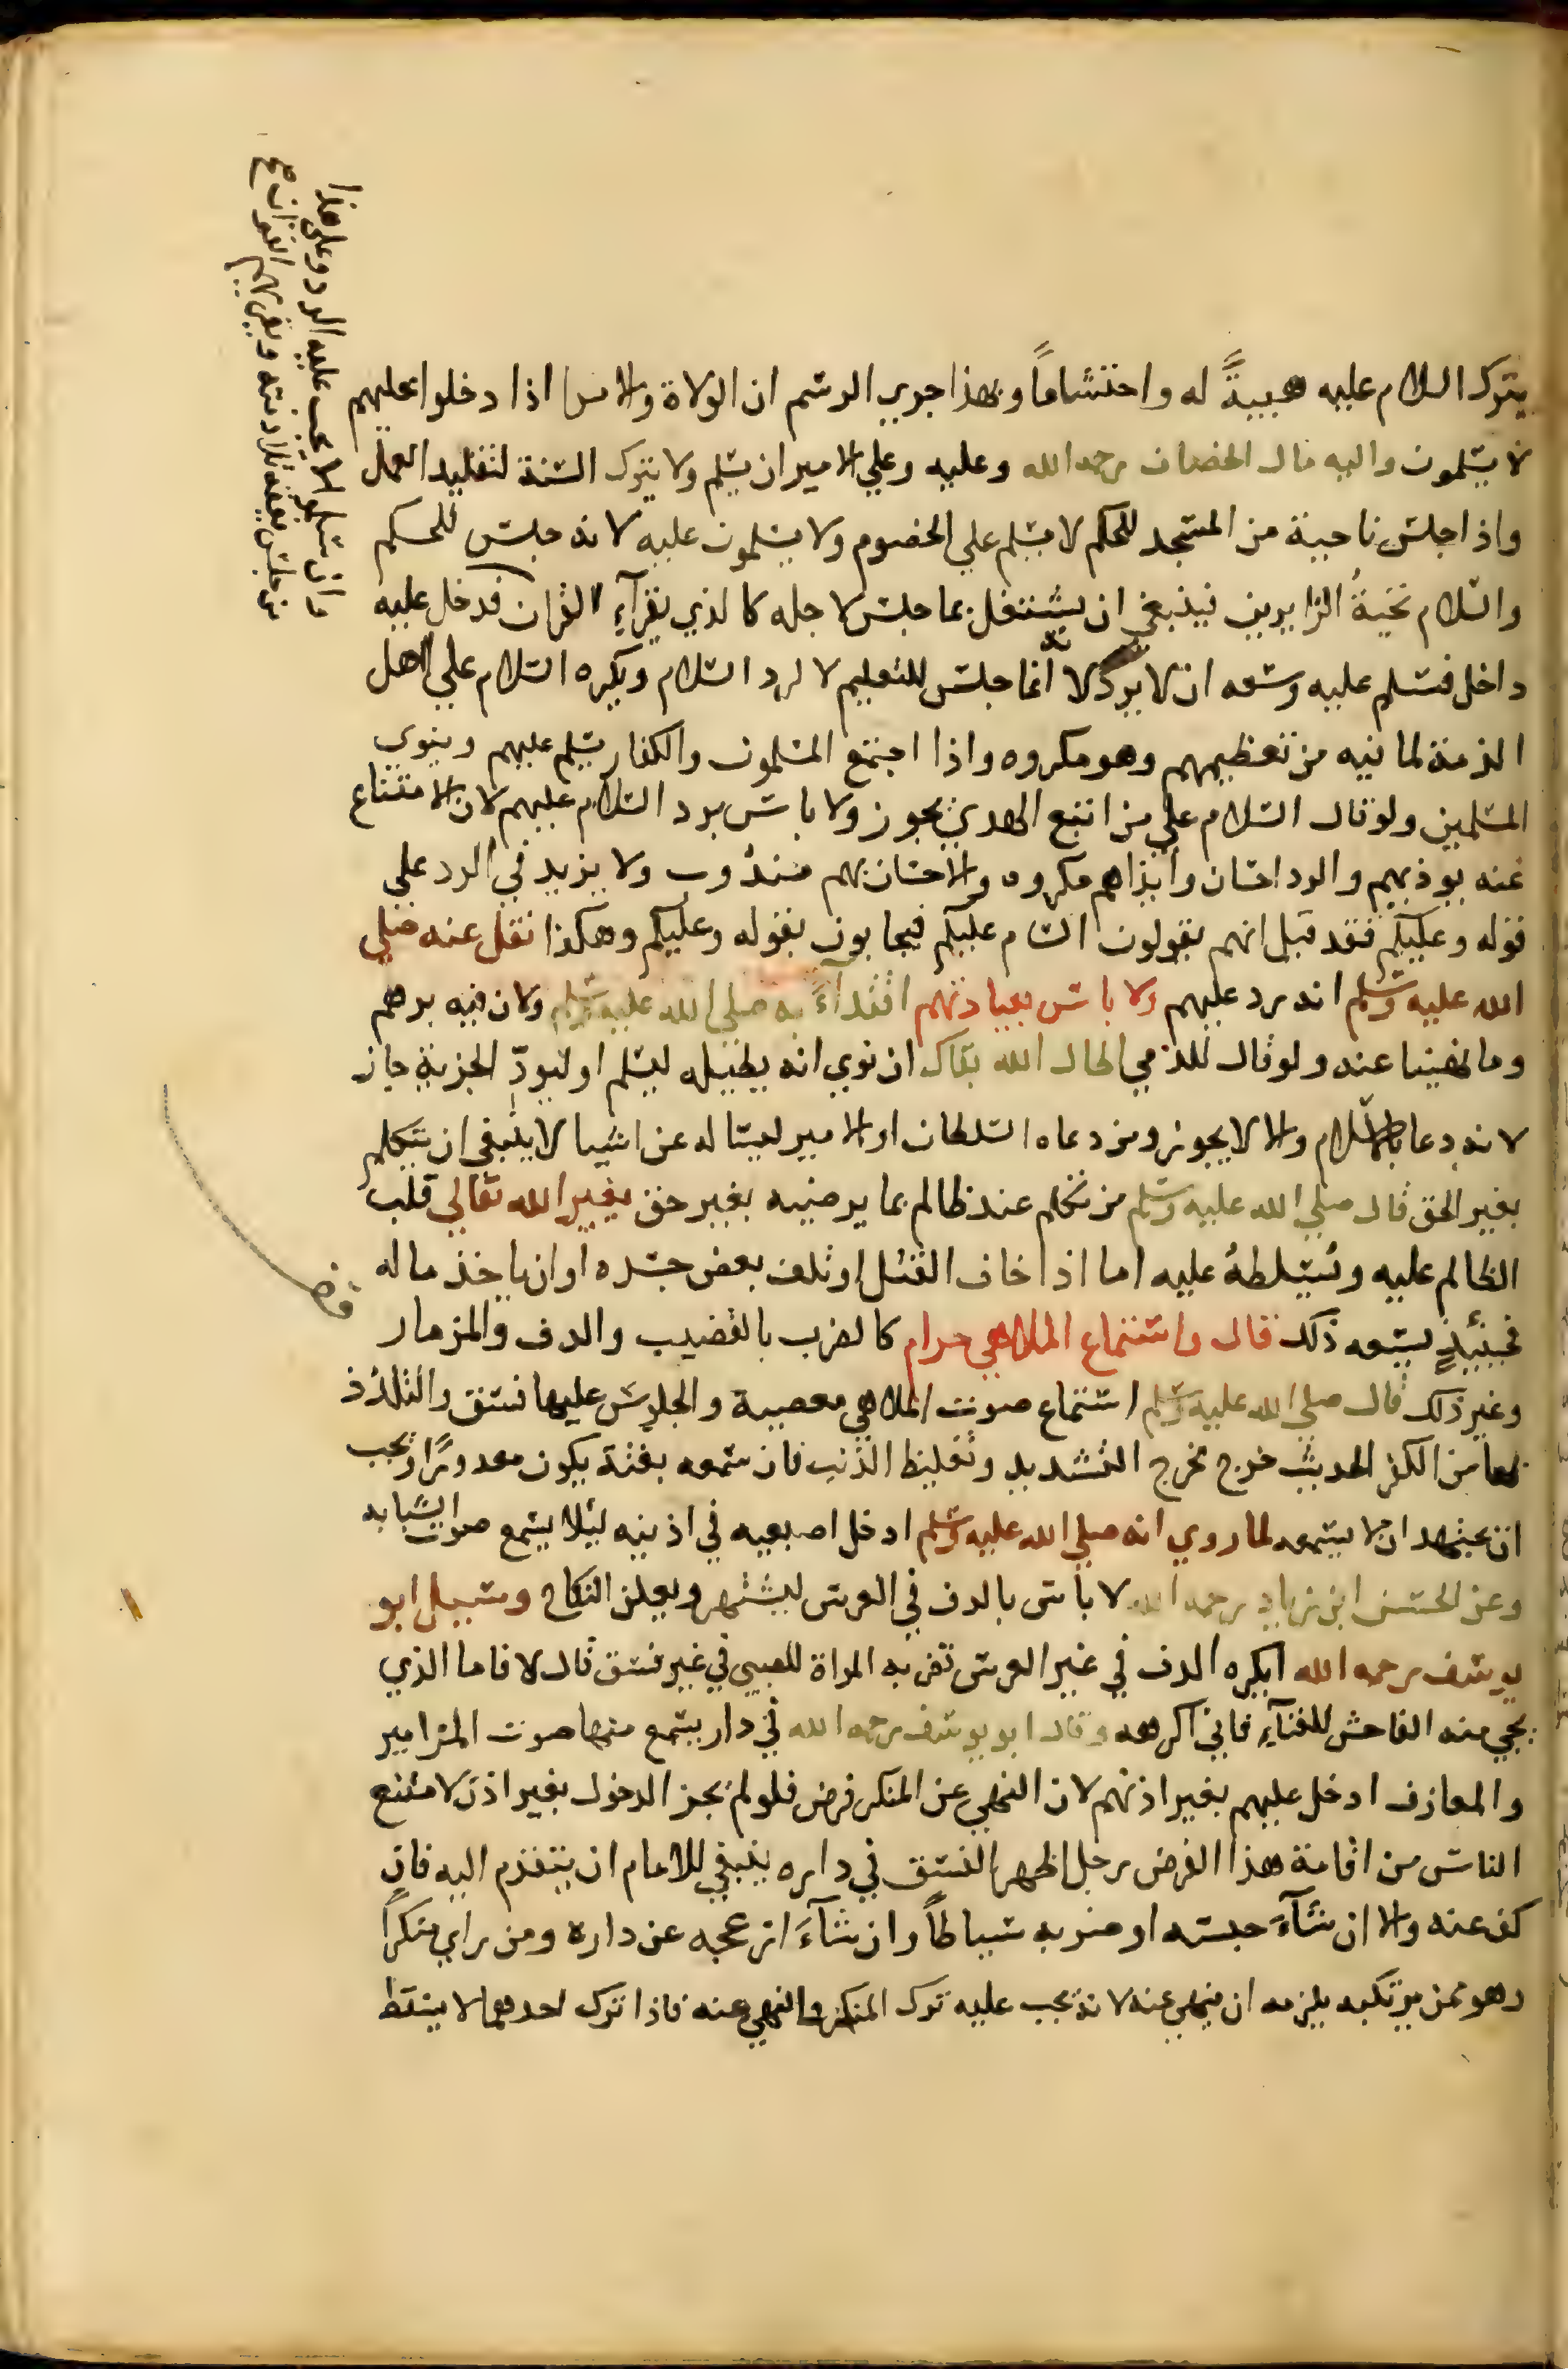 يترك السلام عليه هيبةً له واحتشاماً وبهذا جري الرسم ان الولاة والامرا اذا دخلوا عليهم
لا يسلمون واليه مال الخصاف رحمه الله وعليه وعلي الامير ان يسلم ولا يترك السنة لتقليد العمل
واذا جلس ناحية من المسجد للحكم لا يسلم علي الخصوم ولا يسلمون عليه لانه جلس للحكم
والسلام تحيةُ الزايرين فينبغي ان يشتغل بما جلس لاجله كالذي يقرآء القران فدخل عليه
داخل فسلم عليه وسعه ان لا يرد لانه انما جلس للتعليم لا لرد السلام ويكره السلام علي اهل
الذمة لما فيه من تعظيمهم وهو مكروه واذا اجتمع المسلمون والكفار يسلم عليهم وينوي
المسلمين ولو قال السلام علي من اتبع الهدي يجوز ولا باس برد السلام عليهم لان الامتناع
عنه يوذيهم والرد احسان وايذاهم مكروه والاحسان بهم مندُوب ولا يزيد في الرد علي
قوله وعليكم فقد قيل انهم يقولون السام عليكم فيجابون بقوله وعليكم وهكذا نقل عنه صلي
الله عليه وسلم انه رد عليهم ولا باس بعيادتهم اقتدآءً به صلي الله عليه وسلم ولان فيه برهم
وما نهينا عنه ولو قال للذمي اطال الله بقاك ان نوي انه يطيله ليسلم او ليودّ الجزية جاز
لانه دعا بالاسلام والا لا يجوز ومن دعاه السلطان او الامير ليساله عن اشيا لا ينبغي ان يتكلم
بغير الحق قال صلي الله عليه وسلم من تكلم عند ظالم بما يرضيه بغير حق يغير الله تعالي قلب
الظالم عليه ويُسلطهُ عليه اما اذا خاف القتل او تلف بعض جسده او ان ياخذ ماله
فحينيذٍ يسعه ذلك قال واستماع الملاهي حرام كالضرب بالقضيب والدف والمزمار
وغير ذلك قال صلي الله عليه وسلم استماع صوت الملاهي معصية والجلوس عليها فسق والتلذذ
بها من الكفر الحديث خرج مخرج التشديد وتغليظ الذنب فان سمعه بغتة يكون معدورًا ويجب
ان يجتهد ان لا يسمعه لما روي انه صلي الله عليه وسلم ادخل اصبعيه في اذنيه ليلا يسمع صوت الشبابه
وعن الحسن ابن زياد رحمه الله لا باس بالدف في العرس ليشتهر ويعلن النكاح وسيل ابو
يوسف رحمه الله ايكره الدف في غير العرس تضربه المراة للصبي في غير فسق قال لا فاما الذي
يجي منه الفاحش للغنآء فاني اكرهه وقال ابو يوسف رحمه الله في دار يسمع منها صوت المزامير
والمعازف ادخل عليهم بغير اذنهم لان النهي عن المنكر فرض فلو لم يجز الدخول بغير اذن لامتنع
الناس من اقامة هذا الفرض رجل اظهر الفسق في داره ينبغي للامام ان يتقدم اليه فان
كف عنه والا ان شآءَ حبسه او ضربه سياطاً وان شآءَ ازعجه عن داره ومن راي منكراً
وهو ممن يرتكبه يلزمه ان ينهي عنه لانه يجب عليه ترك المنكر والنهي عنه فاذا ترك احدهما لا يسقط
فان سلموا لا يجب عليه الرد وعلي هذا
من جلس يفقه تلامذته ويقريهم القران صح